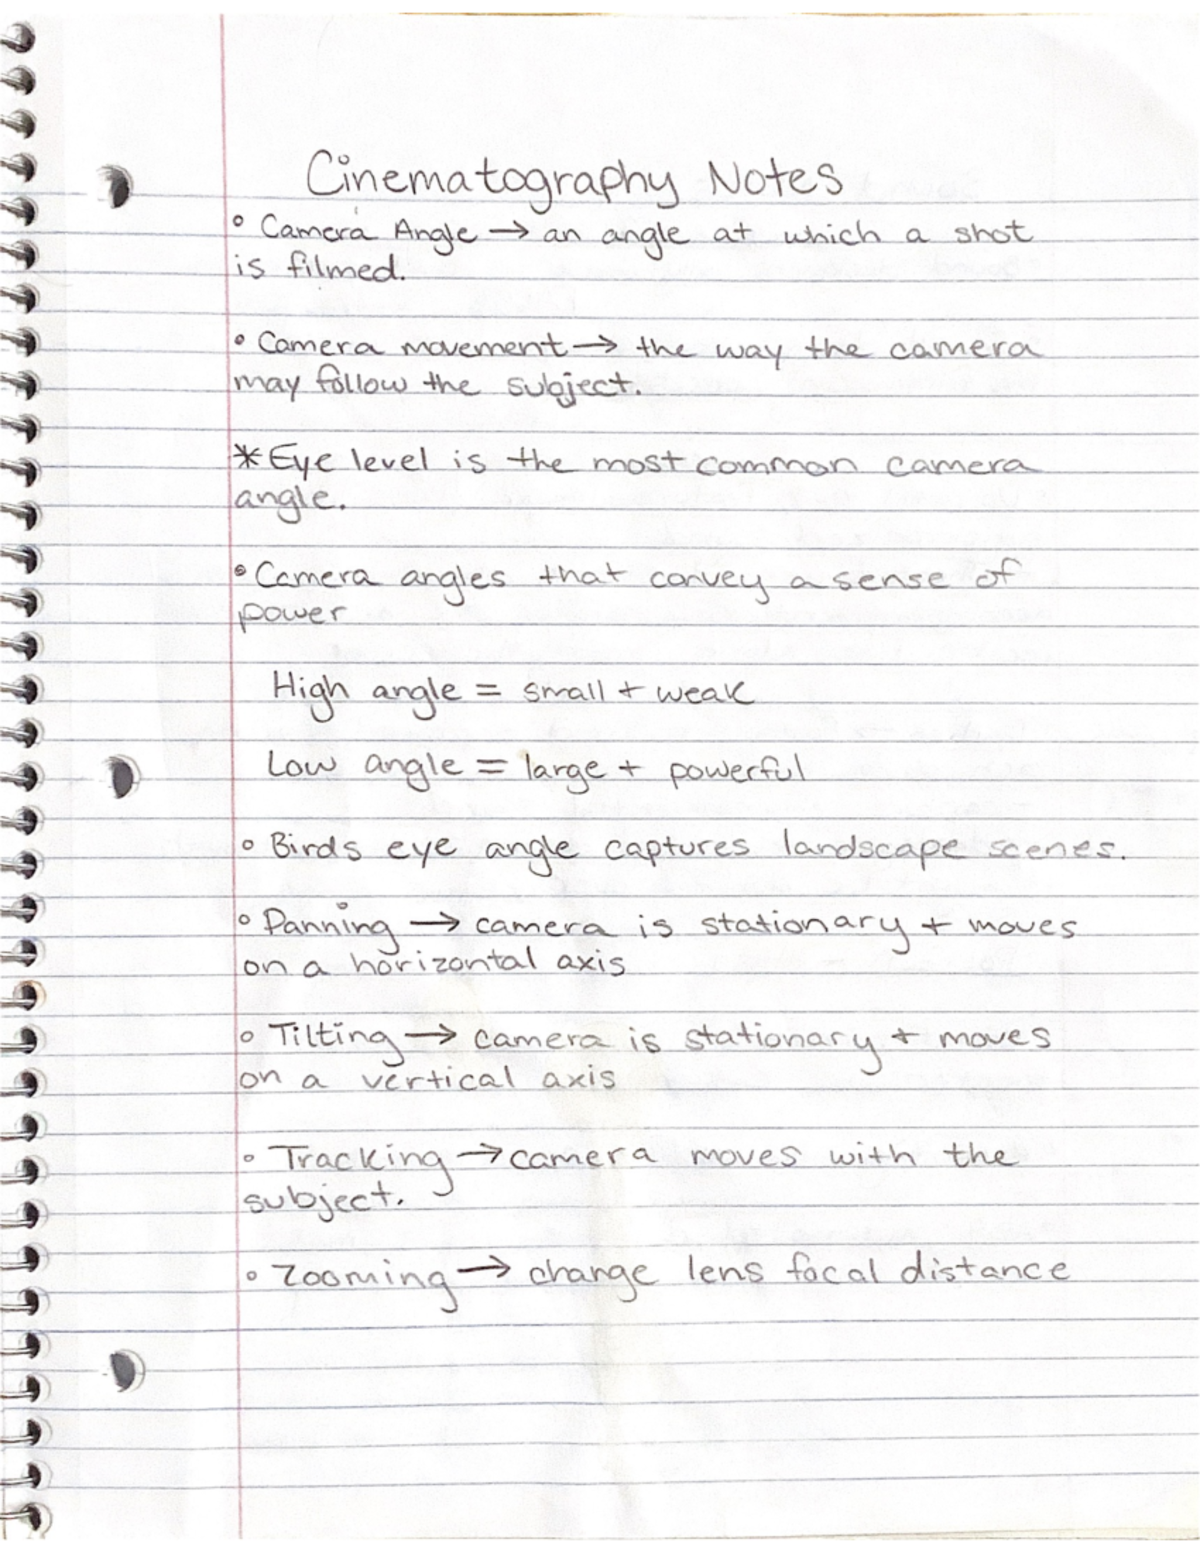 Cinematography Notes
° Camera Angle → an angle at which a shot
is filmed.
° Camera movement → the way the camera
may follow the subject.
* Eye level is the most common camera
angle.
° Camera angles that convey a sense of
power
High angle = small + weak
Low angle = large + powerful
° Birds eye angle captures landscape scenes.
° Panning → camera is stationary + moves
on a horizontal axis
° Tilting → camera is stationary + moves
on a vertical axis
° Tracking → camera moves with the
subject.
° Zooming → change lens focal distance